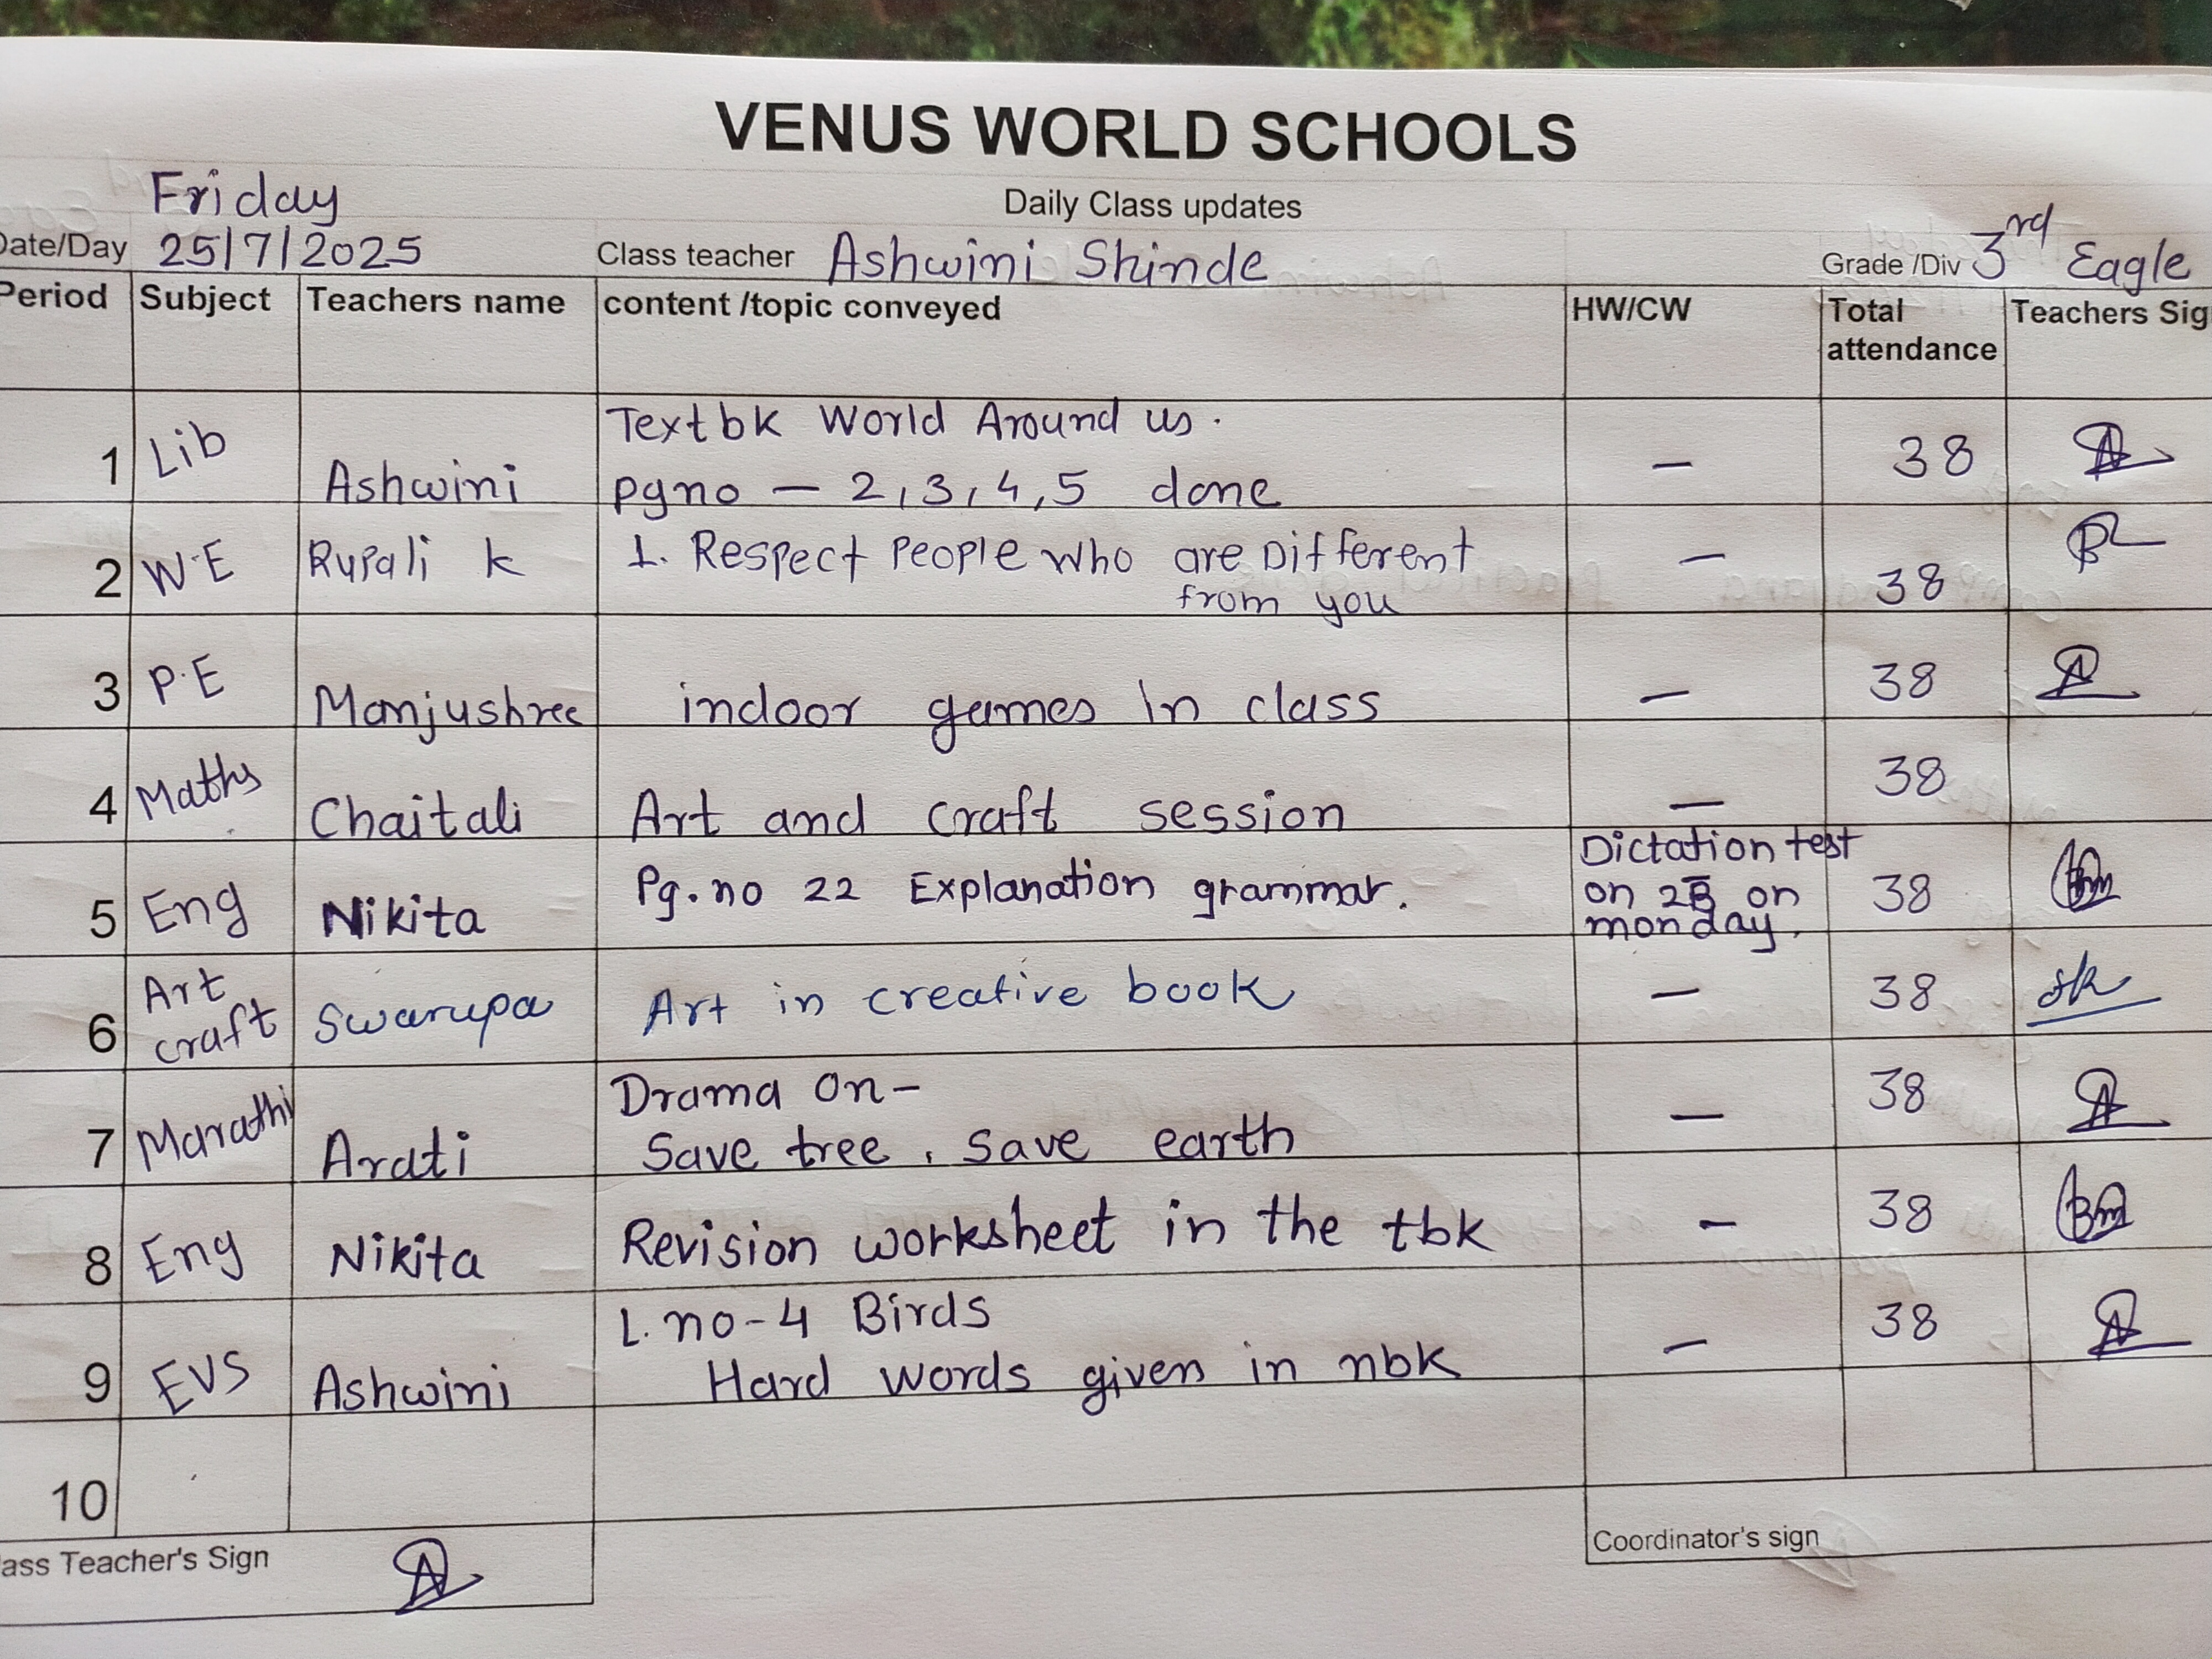 VENUS WORLD SCHOOLS
Daily Class updates
Friday
Date/Day 25/7/2025 Class teacher Ashwini Shinde Grade /Div 3rd Eagle
Period Subject Teachers name content /topic conveyed HW/CW Total attendance Teachers Sig
1 Lib Ashwini Textbk World Around us. — 38
pgno — 2,3,4,5 done
2 W.E Rupali k 1. Respect People who are Different — 38
from you
3 P.E Manjushree indoor games in class — 38
4 Maths Chaitali Art and craft session — 38
5 Eng Nikita Pg.no 22 Explanation grammar. Dictation test 38
on on
monday.
6 Art Swarupa Art in creative book — 38 sk
craft
7 Marathi Arati Drama on- — 38
Save tree, save earth
8 Eng Nikita Revision worksheet in the tbk — 38
9 EVS Ashwini L.no-4 Birds — 38
Hard words given in nbk
10
ass Teacher's Sign Coordinator's sign